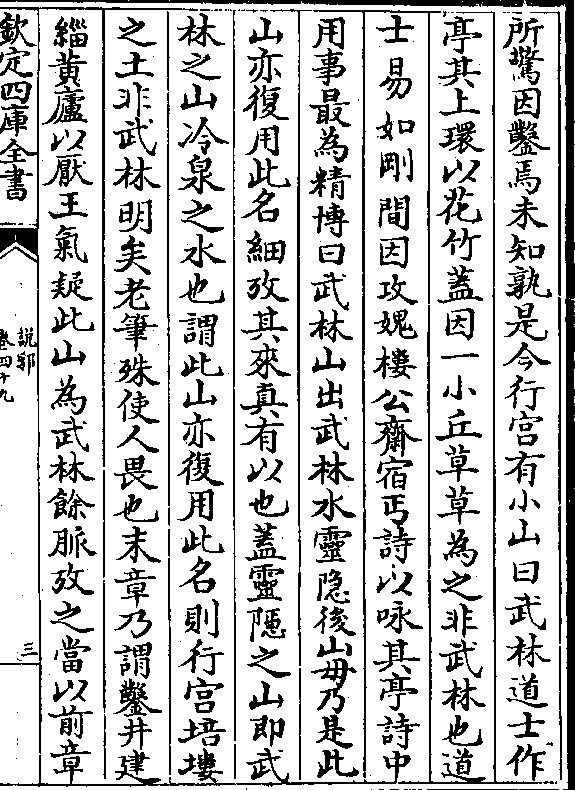 所驚因鑿焉未知孰是今行宮有小山曰武林道士作
亭其上環以花竹蓋因一小丘草草為之非武林也道
士易如剛間因攻媿樓公齋宿丐詩以咏其亭詩中
用事最為精博曰武林山出武林水靈隐後山毋乃是此
山亦復用此名細攷其來真有以也蓋靈隱之山即武
林之山冷泉之水也謂此山亦復用此名則行宮培塿
之土非武林明矣老筆殊使人畏也末章乃謂鑿井建
緇黃廬以厭王氣疑此山為武林餘脈攷之當以前章
欽定四庫全書
說郛
卷四十九
三